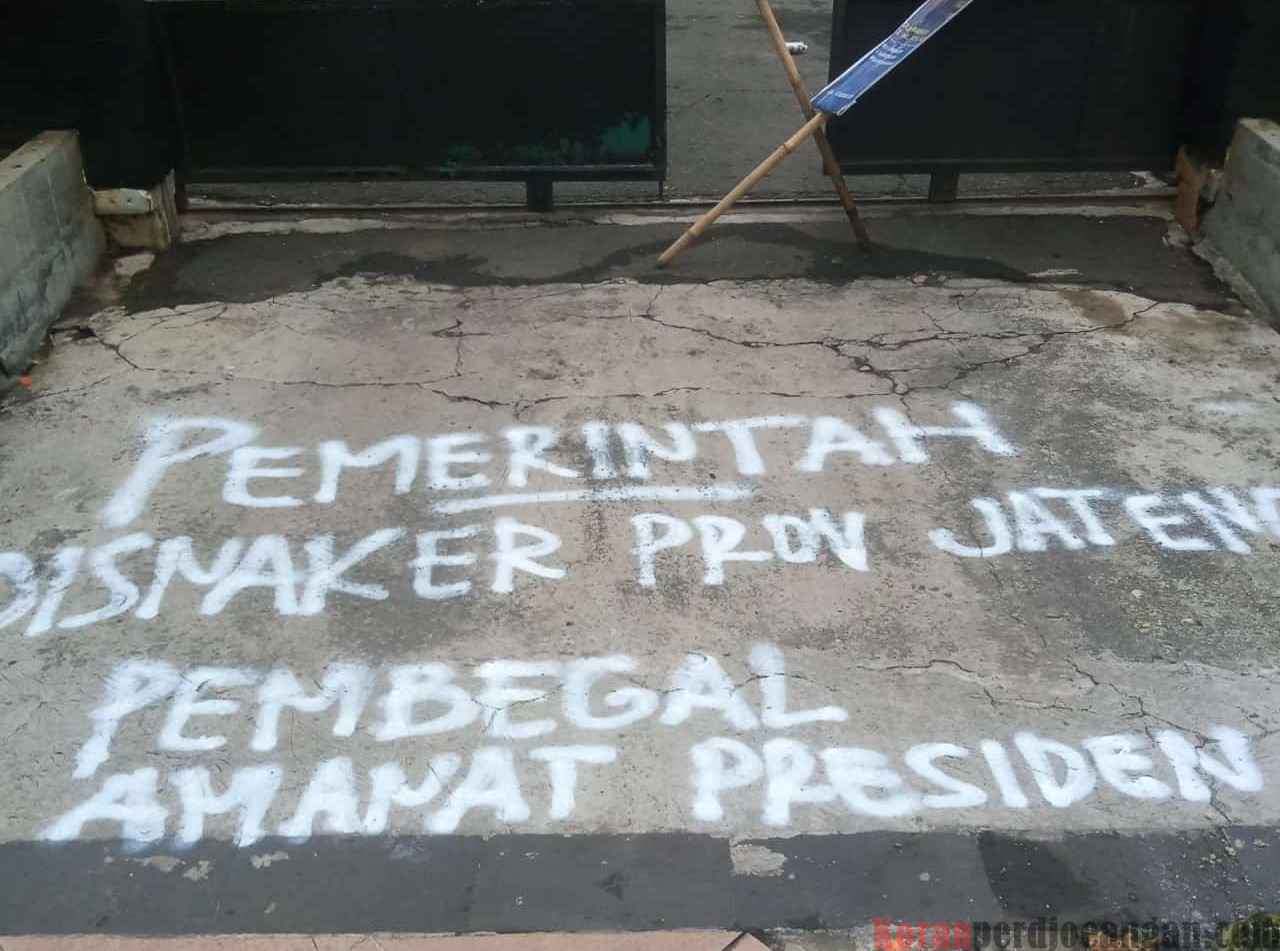 PEMERINTAH
DISNAKER PROV JATENG
PEMBEGAL
AMANAT PRESIDEN
Koranperdjoeangan.com